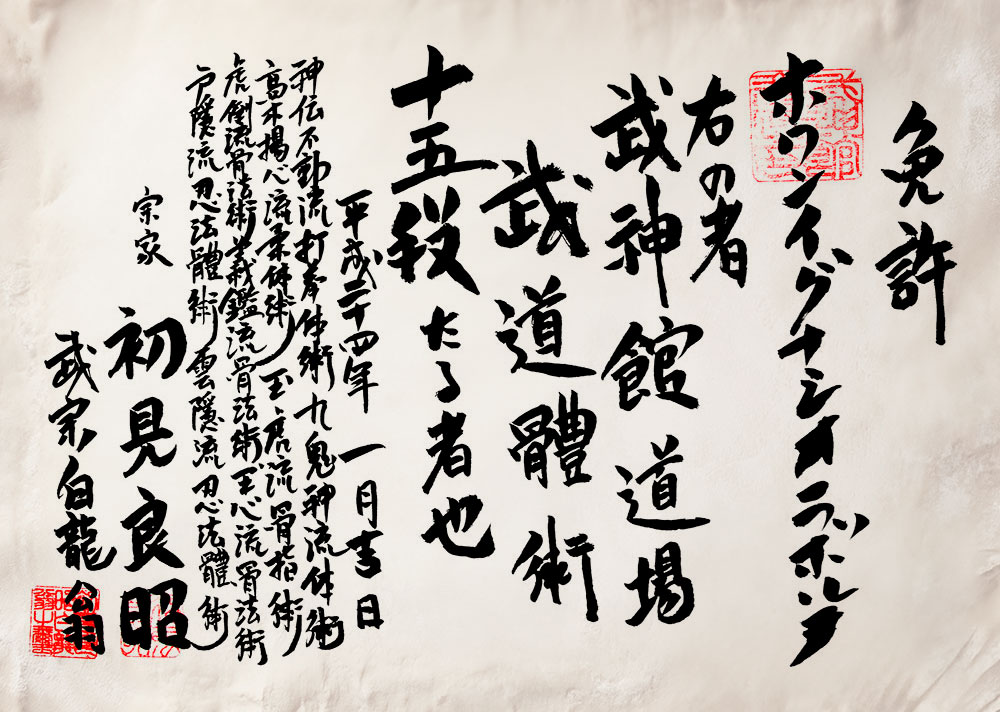 免許
ホワンイグナシオラッポルタ
右の者
武神館道場
武道體術
十五段たる者也
平成二十四年 一月吉日
神伝不動流打拳体術 九鬼神流体術
高木揚心流柔体術 玉虎流骨指術
虎倒流骨法術 義鑑流骨法術 玉心流骨法術
戸隠流忍法體術 雲隠流忍法體術
宗家
初見良昭
武宗白龍翁